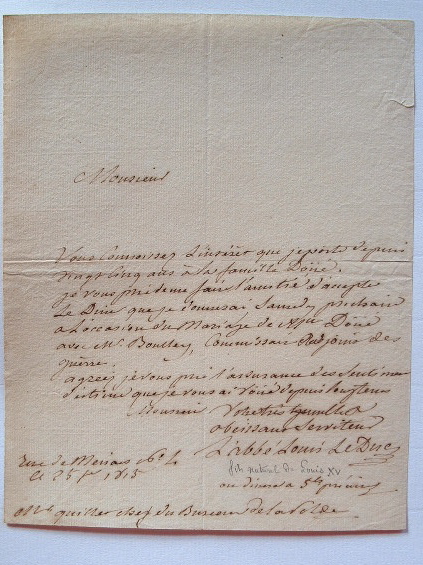 Monsieur
Vous connaissez L'intéret que je porte depuis
vingt cinq ans à la famille Doné.
je vous prie de me faire l'amitié d'accepter
Le Diner que je donnerai Samedy prochain
a L'occasion du Mariage de
avec Mr. Boullay, Commissaire adjoint des
guerre.
agréez je vous prie l'assurance des Sentimens
d'estime que je vous ai voué depuis longtems
Monsieur Votre très humble &
obeissant Serviteur
L'abbé Louis Le Duc
fils naturel de Louis XV
rue de No. 4
Ce 25 1815
on dinera a 5h précises
Mr. chef du Bureau de la